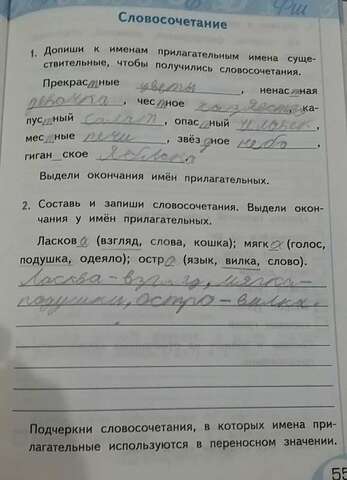 Словосочетание
1. Допиши к именам прилагательным имена суще-
ствительные, чтобы получились словосочетания.
Прекрастные цветы, ненастная
девочка, честное хозяество, ка-
пустный салат, опастный человек,
местные печи, звёздное небо,
гиган ское яблоко.
Выдели окончания имён прилагательных.
2. Составь и запиши словосочетания. Выдели окон-
чания у имён прилагательных.
Ласкова (взгляд, слова, кошка); мягка (голос,
подушка, одеяло); остра (язык, вилка, слово).
Ласква - взгляд, мягка -
подушки, остра - вилка.
Подчеркни словосочетания, в которых имена при-
лагательные используются в переносном значении.
55